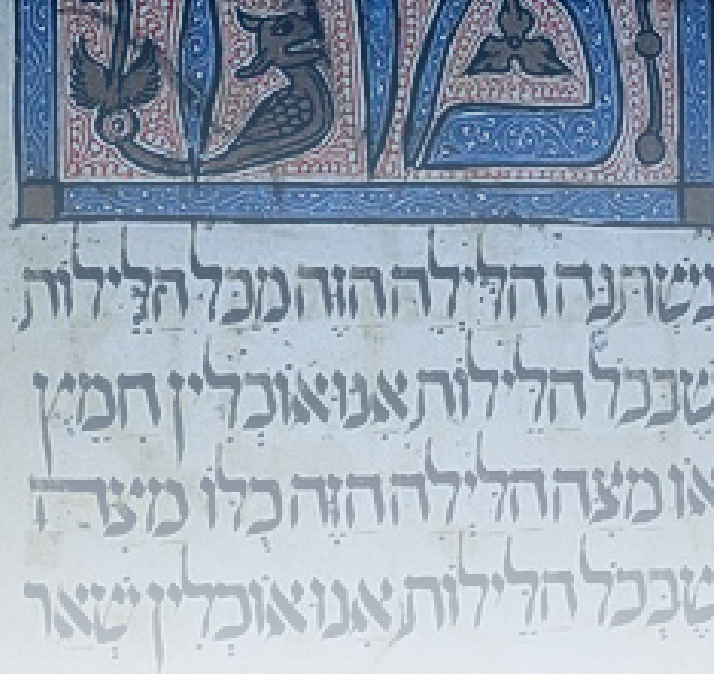 נשתנה הלילה הזה מכל הלילות
שבכל הלילות אנו אוכלין חמץ
או מצה הלילה הזה כלו מצה
שבכל הלילות אנו אוכלין שאר